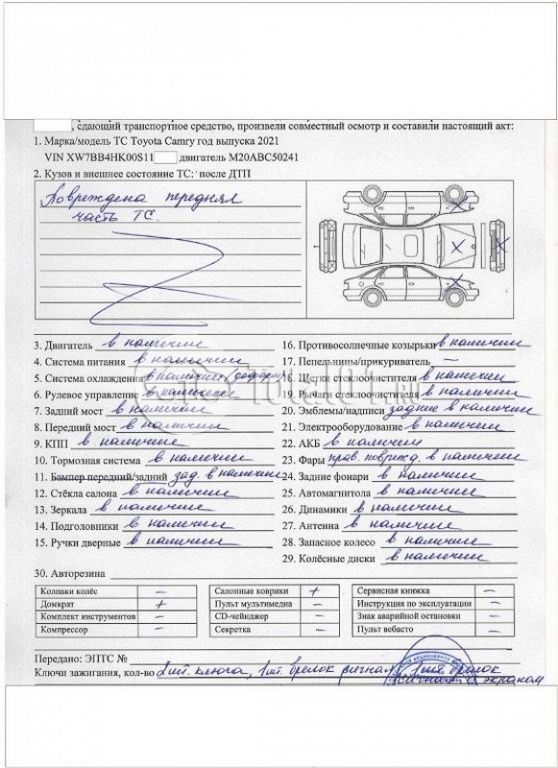 , сдающий транспортное средство, произвели совместный осмотр и составили настоящий акт:
1. Марка/модель ТС Toyota Camry год выпуска 2021
VIN XW7BB4HK00S11 двигатель M20ABC50241
2. Кузов и внешнее состояние ТС: после ДТП
Повреждена передняя
часть ТС.
3. Двигатель в наличии
4. Система питания в наличии
5. Система охлаждения в наличии
6. Рулевое управление в наличии
7. Задний мост в наличии
8. Передний мост в наличии
9. КПП в наличии
10. Тормозная система в наличии
11. Бампер передний/задний зад. в наличии
12. Стёкла салона в наличии
13. Зеркала в наличии
14. Подголовники в наличии
15. Ручки дверные в наличии
16. Противосолнечные козырьки в наличии
17. Пепельницы/прикуриватель —
18. Щетки стеклоочистителя в наличии
19. Рычаги стеклоочистителя в наличии
20. Эмблемы/надписи задние в наличии
21. Электрооборудование в наличии
22. АКБ в наличии
23. Фары прав. поврежд. в наличии
24. Задние фонари в наличии
25. Автомагнитола в наличии
26. Динамики в наличии
27. Антенна в наличии
28. Запасное колесо в наличии
29. Колёсные диски в наличии
30. Авторезина
Колпаки колёс — Салонные коврики + Сервисная книжка —
Домкрат + Пульт мультимедиа — Инструкция по эксплуатации —
Комплект инструментов — CD-чейнджер — Знак аварийной остановки —
Компрессор — Секретка — Пульт вебасто —
Передано: ЭПТС №
Ключи зажигания, кол-во 2 шт. ключа, 1 шт. брелок сигнал 1 шт. брелок
сигнал. с экраном